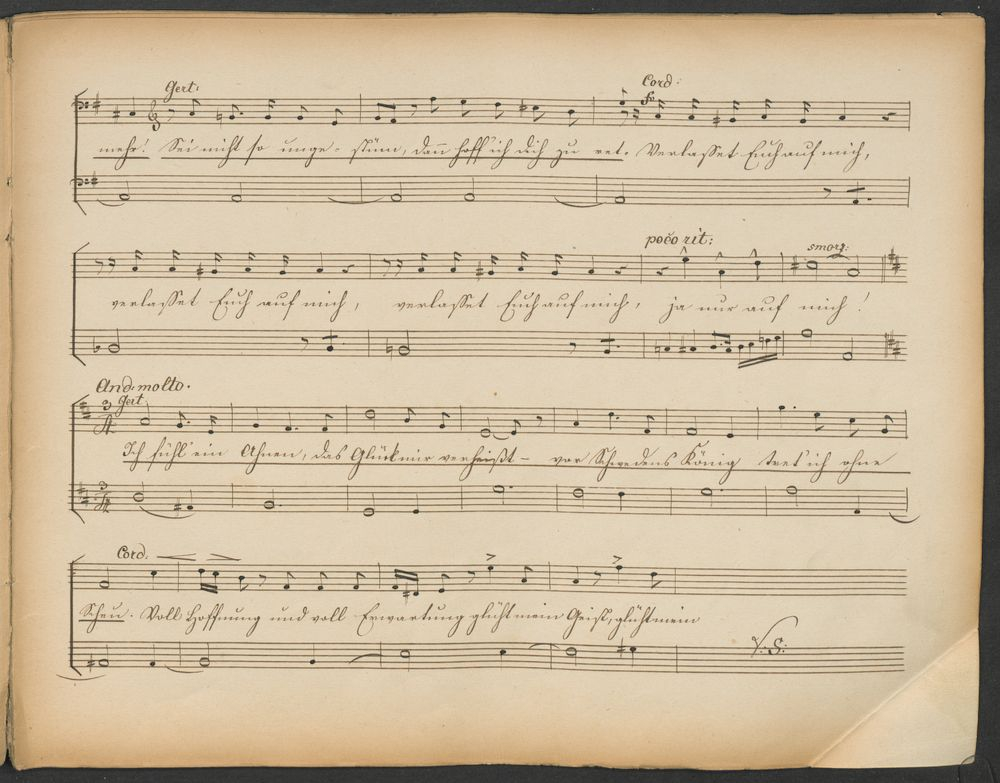 Gert: Cord:
mehr! Sei nicht so unge- stüm, dann hoff' ich dich zu ret. Verlasset Euch auf mich,
poco rit: smorz:
verlasset Euch auf mich, verlasset Euch auf mich, ja nur auf mich!
And: molto.
Gert
Ich fühl' ein Ahnen, das Glück mir verheißt – vor Schwedens König tret' ich ohne
Cord:
Scheu. Voll Hoffnung und voll Erwartung glüht mein Geist, glüht mein
V: S: